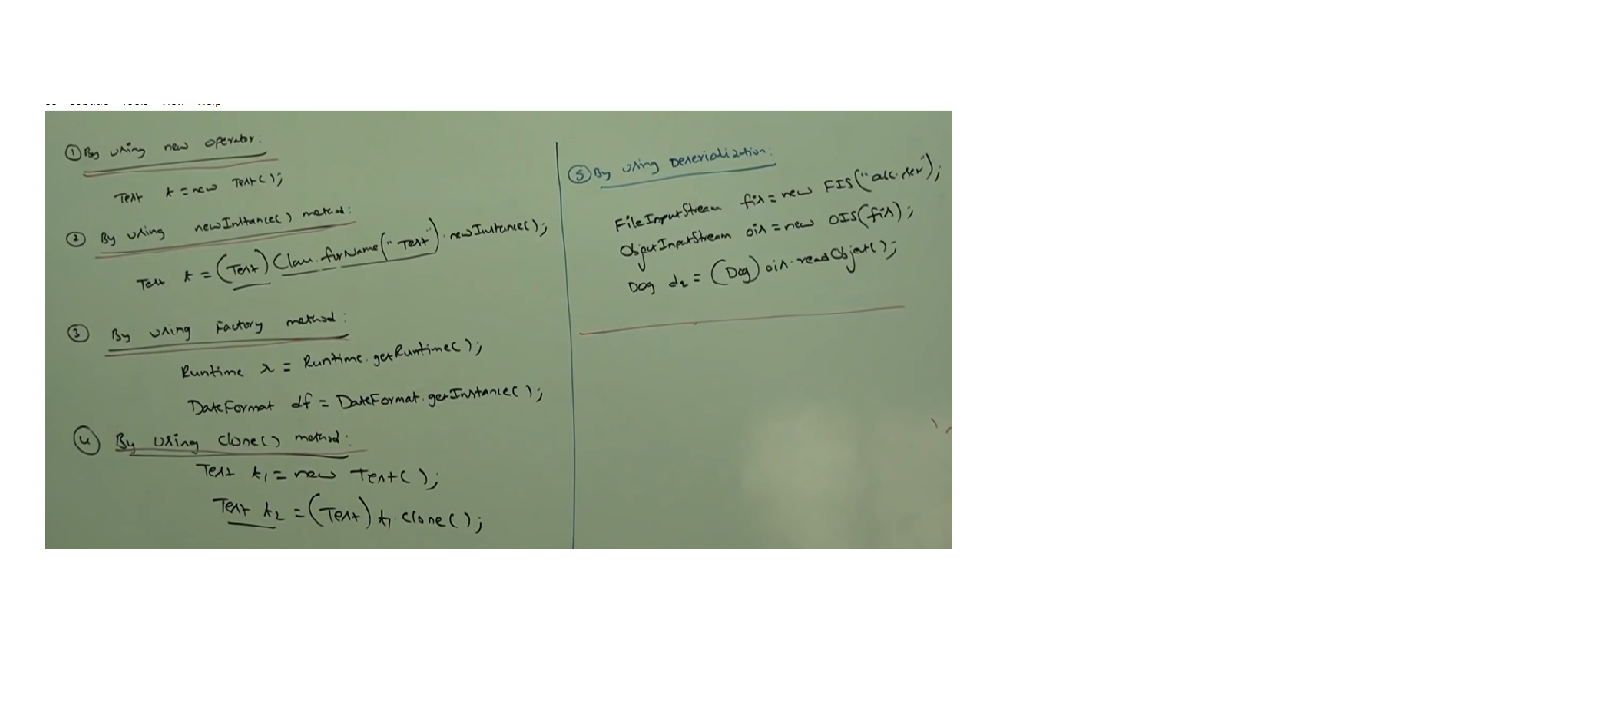 ① By using new operator.
Test t = new Test();
② By using newInstance() method:
Test t = (Test) Class.forName("Test").newInstance();
③ By using Factory method:
Runtime r = Runtime.getRuntime();
DateFormat df = DateFormat.getInstance();
④ By using clone() method:
Test t1 = new Test();
Test t2 = (Test) t1.clone();
⑤ By using Deserialization:
FileInputStream fis = new FIS("abc.ser");
ObjectInputStream ois = new OIS(fis);
Dog d2 = (Dog) ois.readObject();